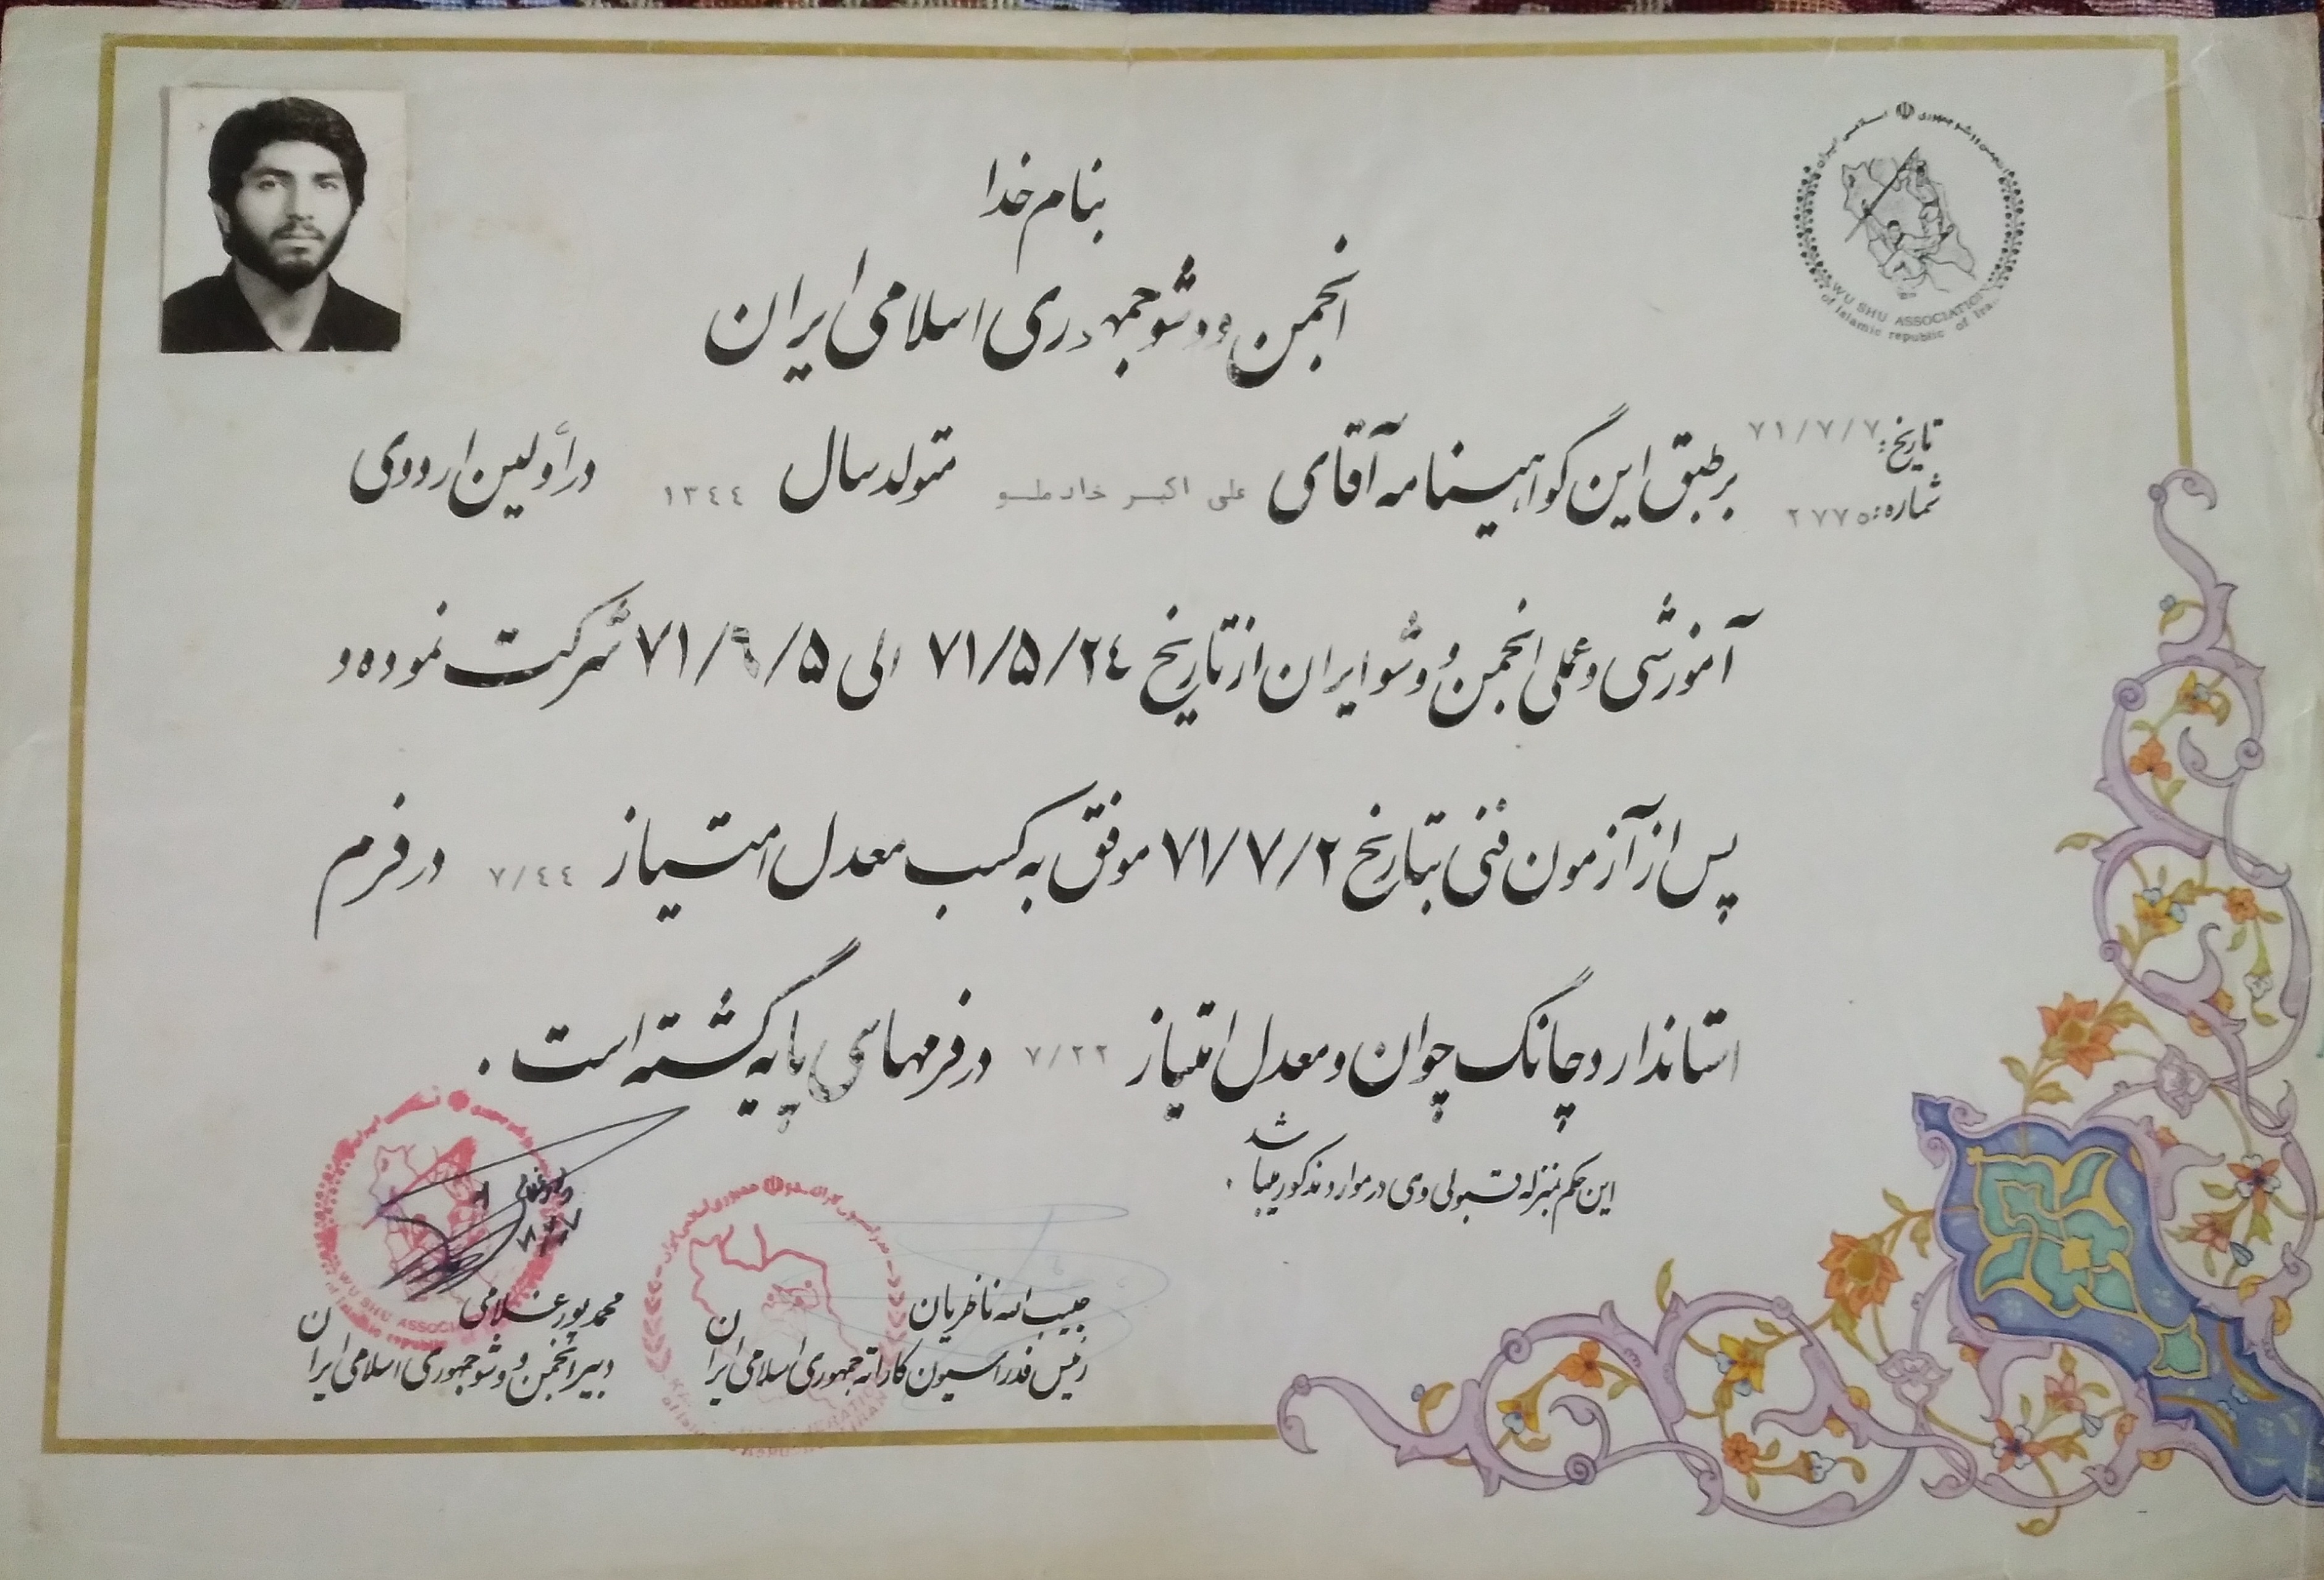 انجمن ووشو جمهوری اسلامی ایران
WU SHU ASSOCIATION
of Islamic republic of Iran
بنام خدا
انجمن ووشو جمهوری اسلامی ایران
تاریخ: ۷۱/۷/۷
شماره: ۲۷۷۵
بر طبق این گواهینامه آقای علی اکبر خادملو متولد سال ۱۳٤٤ در أولین اردوی
آموزشی و عملی انجمن ووشو ایران از تاریخ ۷۱/۵/۲٤ الی ۷۱/۶/۵ شرکت نموده و
پس از آزمون فنی بتاریخ ۷۱/۷/۲ موفق به کسب معدل امتیاز ۷/٤٤ در فرم
استاندارد چانگ چوان و معدل امتیاز ۷/۲۲ در فرمهای پایه گشته است.
این حکم بمنزله قبولی وی در موارد مذکور میباشد.
حبیب الله ناظریان
رئیس فدراسیون کاراته جمهوری اسلامی ایران
محمد پورغلامی
دبیر انجمن ووشو جمهوری اسلامی ایران